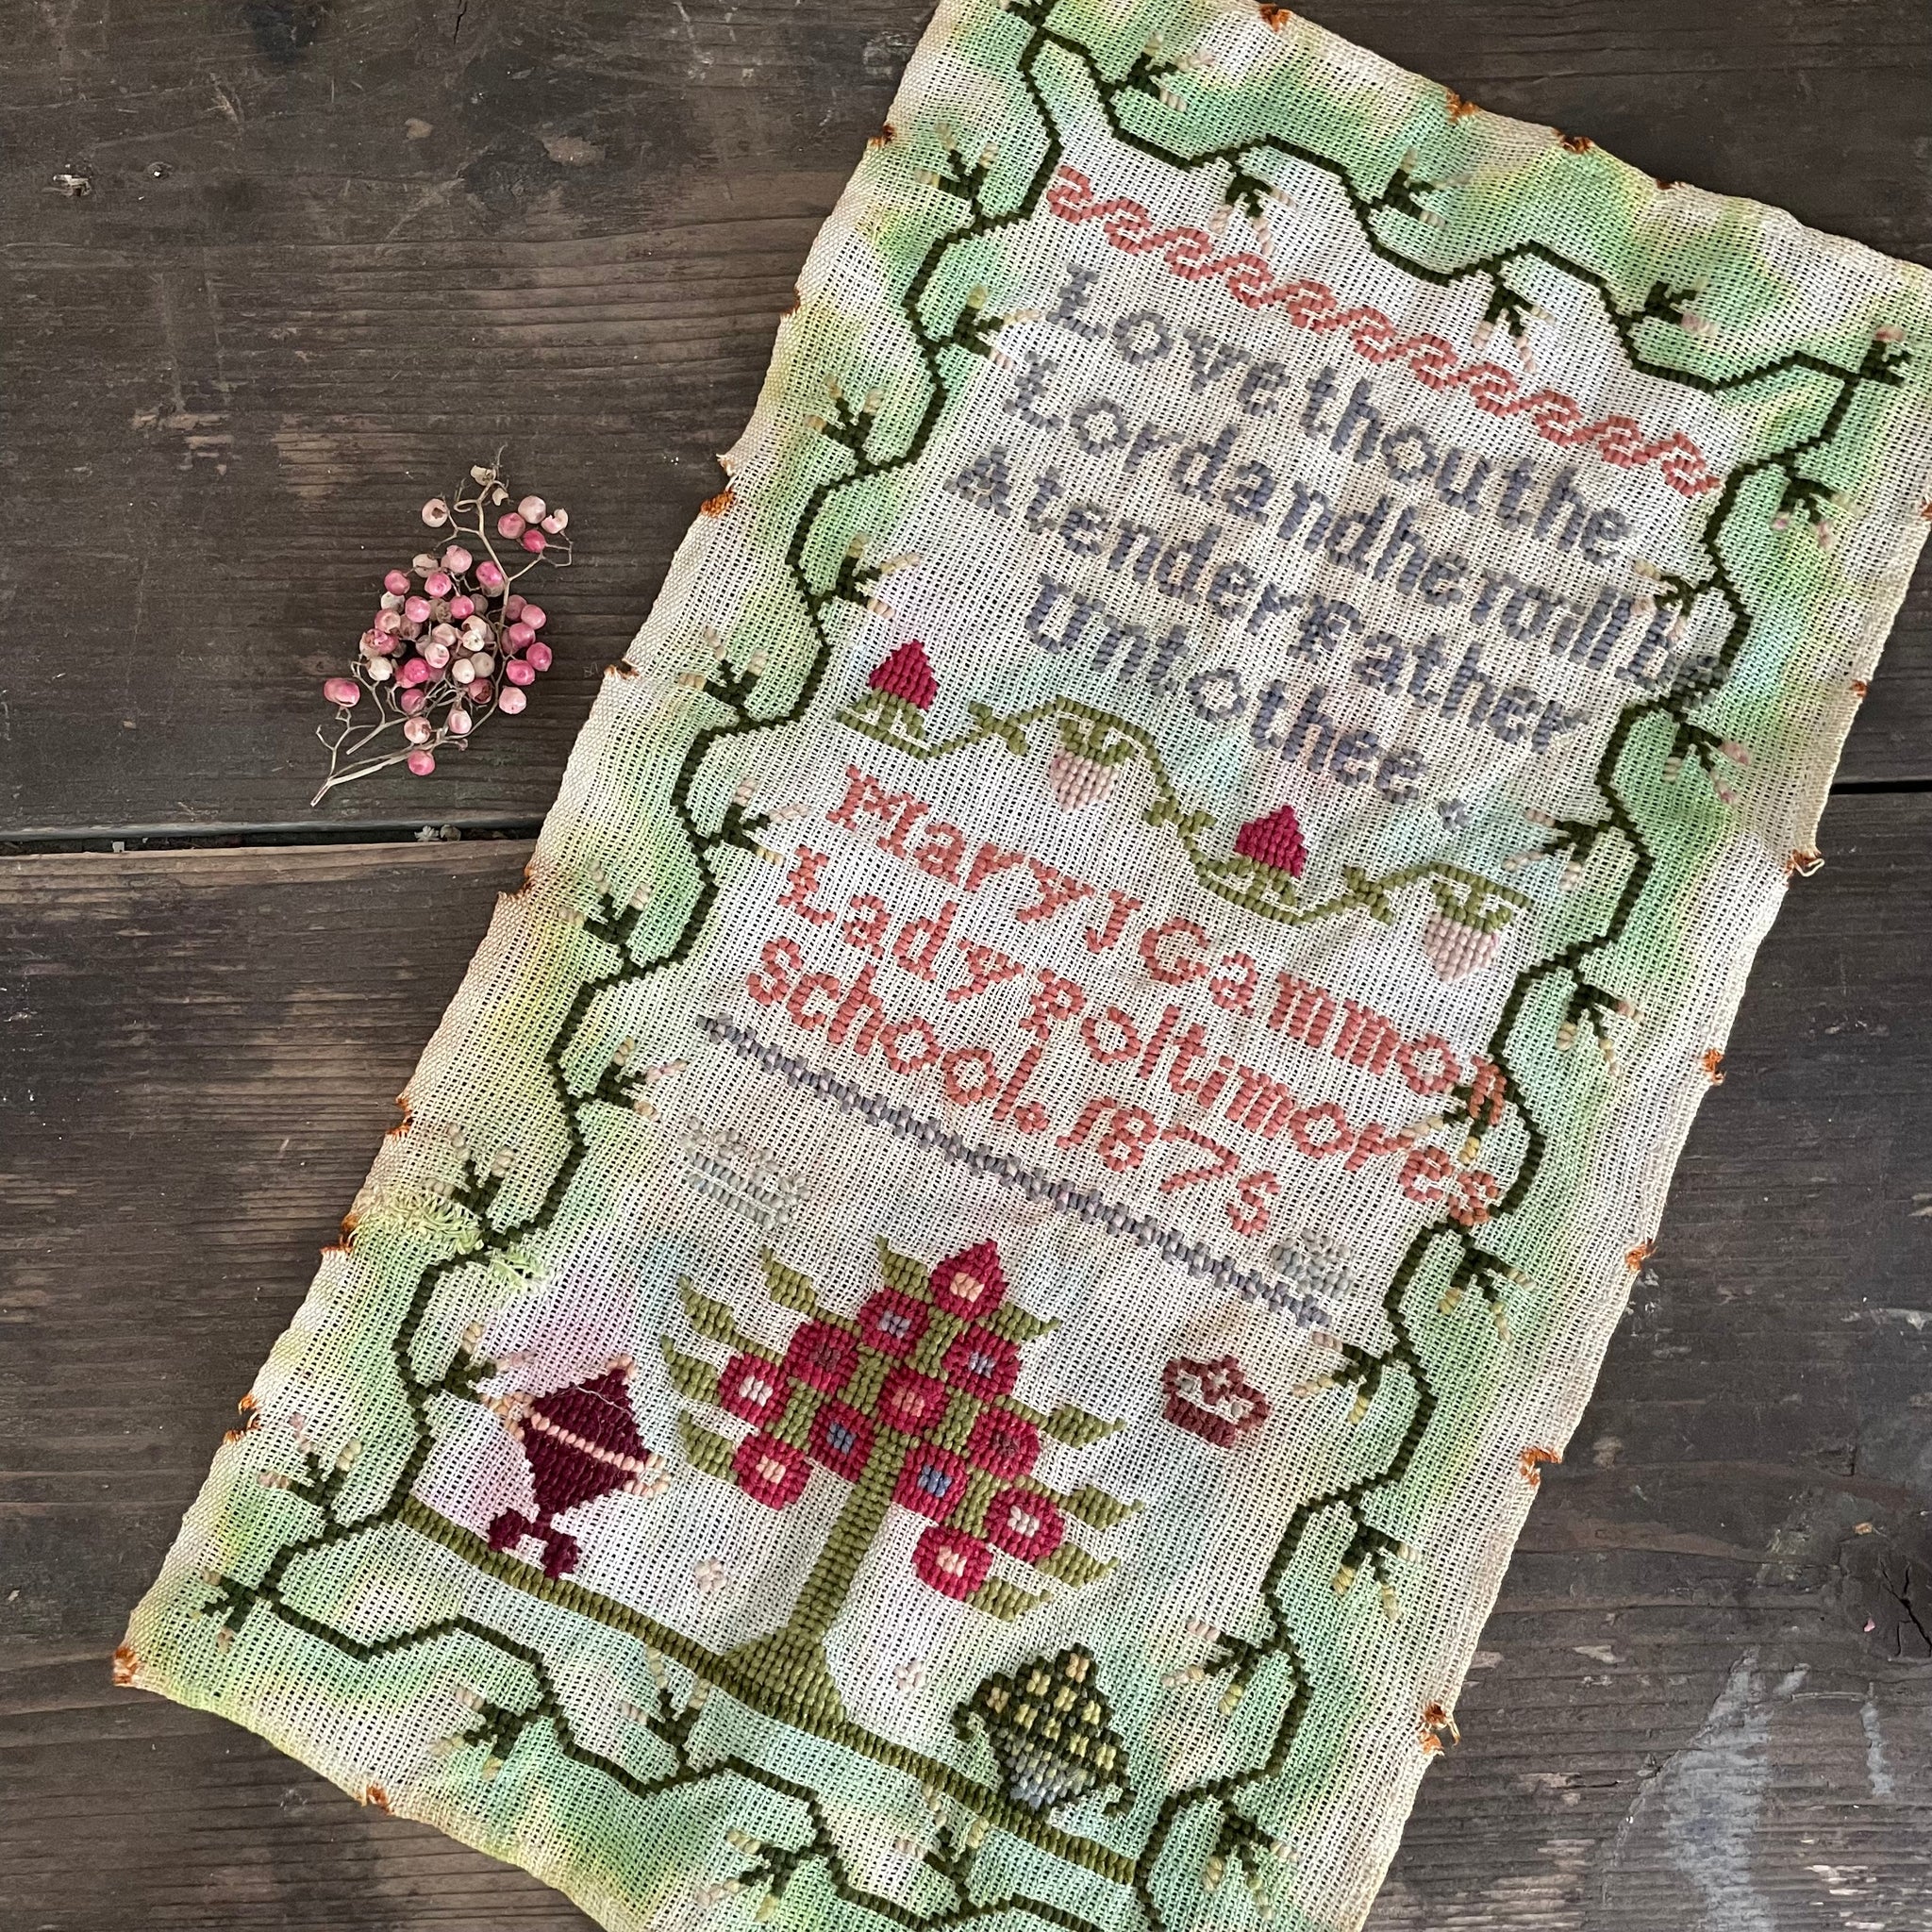 Love thou the
Lord and he will be
A tender Father
Unto thee.
Mary J Gammon
Lady Poltimores
School. 1875